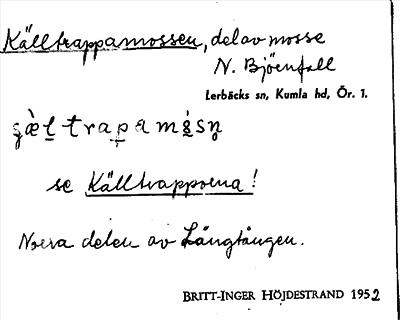 Källtrappamossen, del av mosse
N. Björnfall
Lerbäcks sn, Kumla hd, Ör. 1.
se Källtrapporna!
Norra delen av Långtången.
BRITT-INGER HÖJDESTRAND 1952